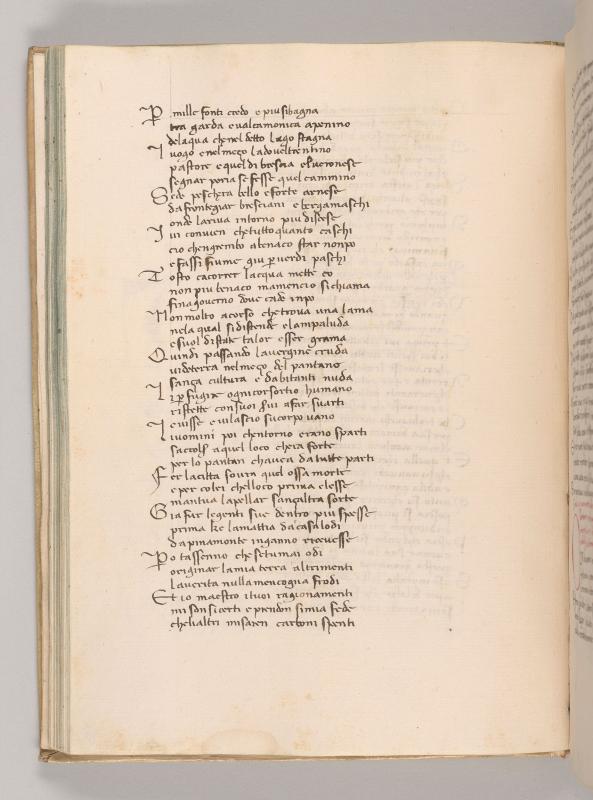 P mille fonti credo e piu si bagna
tra garda e ualcamonica apenino
delaqua che nel detto lago stagna
I uogo e nel mezo la doue l trentino
pastore e quel di brescia el ueronese
segnar poria se fesse quel cammino
Sede peschera bello e forte arnese
da frontegiar bresciani e bergamaschi
onde la riua intorno piu discese
Iui conuien che tutto quanto caschi
cio chen grembo a benaco star non po
e fassi fiume giu p uerdi paschi
Tosto ca correr lacqua mette co
non piu benaco ma mencio si chiama
fin a gouerno doue cade in po
Non molto a corso che troua una lama
nela qual si distende e la mpaluda
e suol di state talor esser grama
Quindi passando la uergine cruda
uide terra nel mezo del pantano
sanza cultura e dabitanti nuda
I p fugir ogni consortio humano
ristette con suoi serui a far su arti
I e uisse e ui lascio su corpo uano
I uomini poi chentorno erano sparti
saccolser a quel loco chera forte
per lo pantan chauea da tutte parti
Fer la citta soura quel ossa morte
e per colei chel loco prima elesse
mantua lapellar sanzaltra sorte
Gia fur le genti sue dentro piu spesse
prima ke la mattia da casalodi
da pinamonte inganno riceuesse
Po tassenno che se tu mai odi
originar la mia terra altrimenti
la uerita nulla mencogna frodi
Et io maestro i tuoi ragionamenti
mi son si certi e prendon si mia fede
che li altri mi sarien carboni spenti